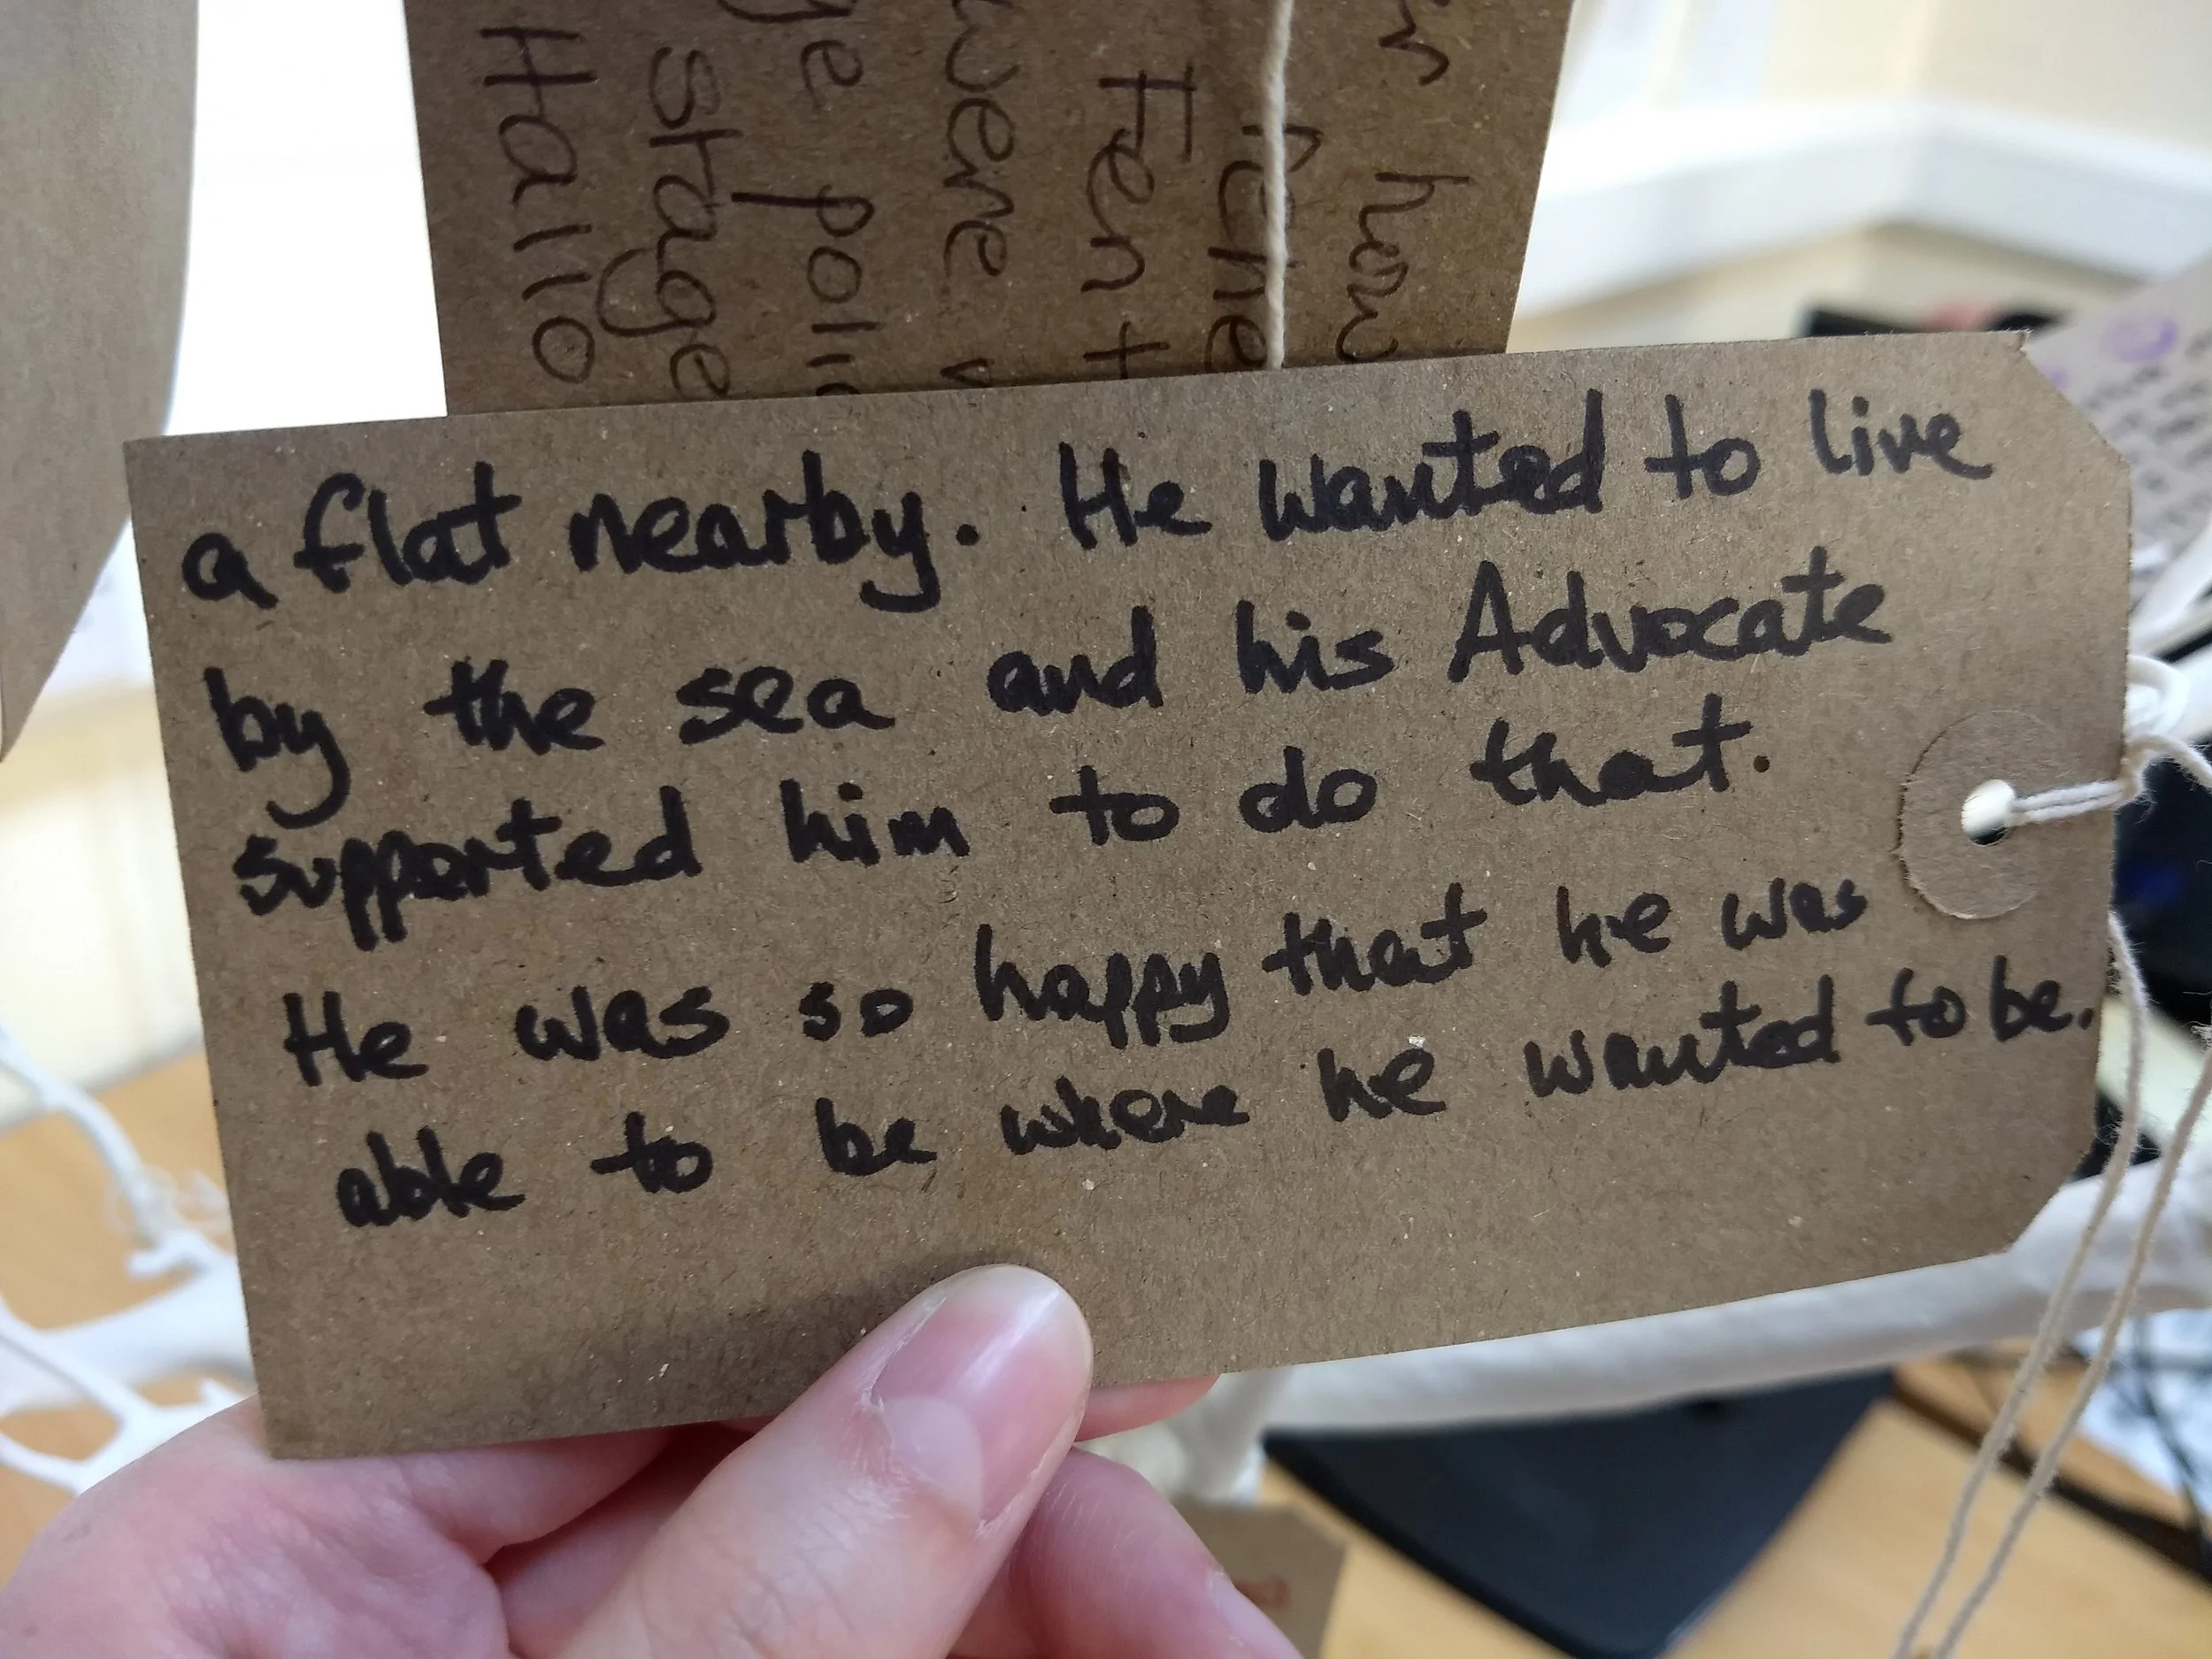 a flat nearby. He wanted to live
by the sea and his Advocate
supported him to do that.
He was so happy that he was
able to be where he wanted to be.
how
Fen
were
stage
Hallo